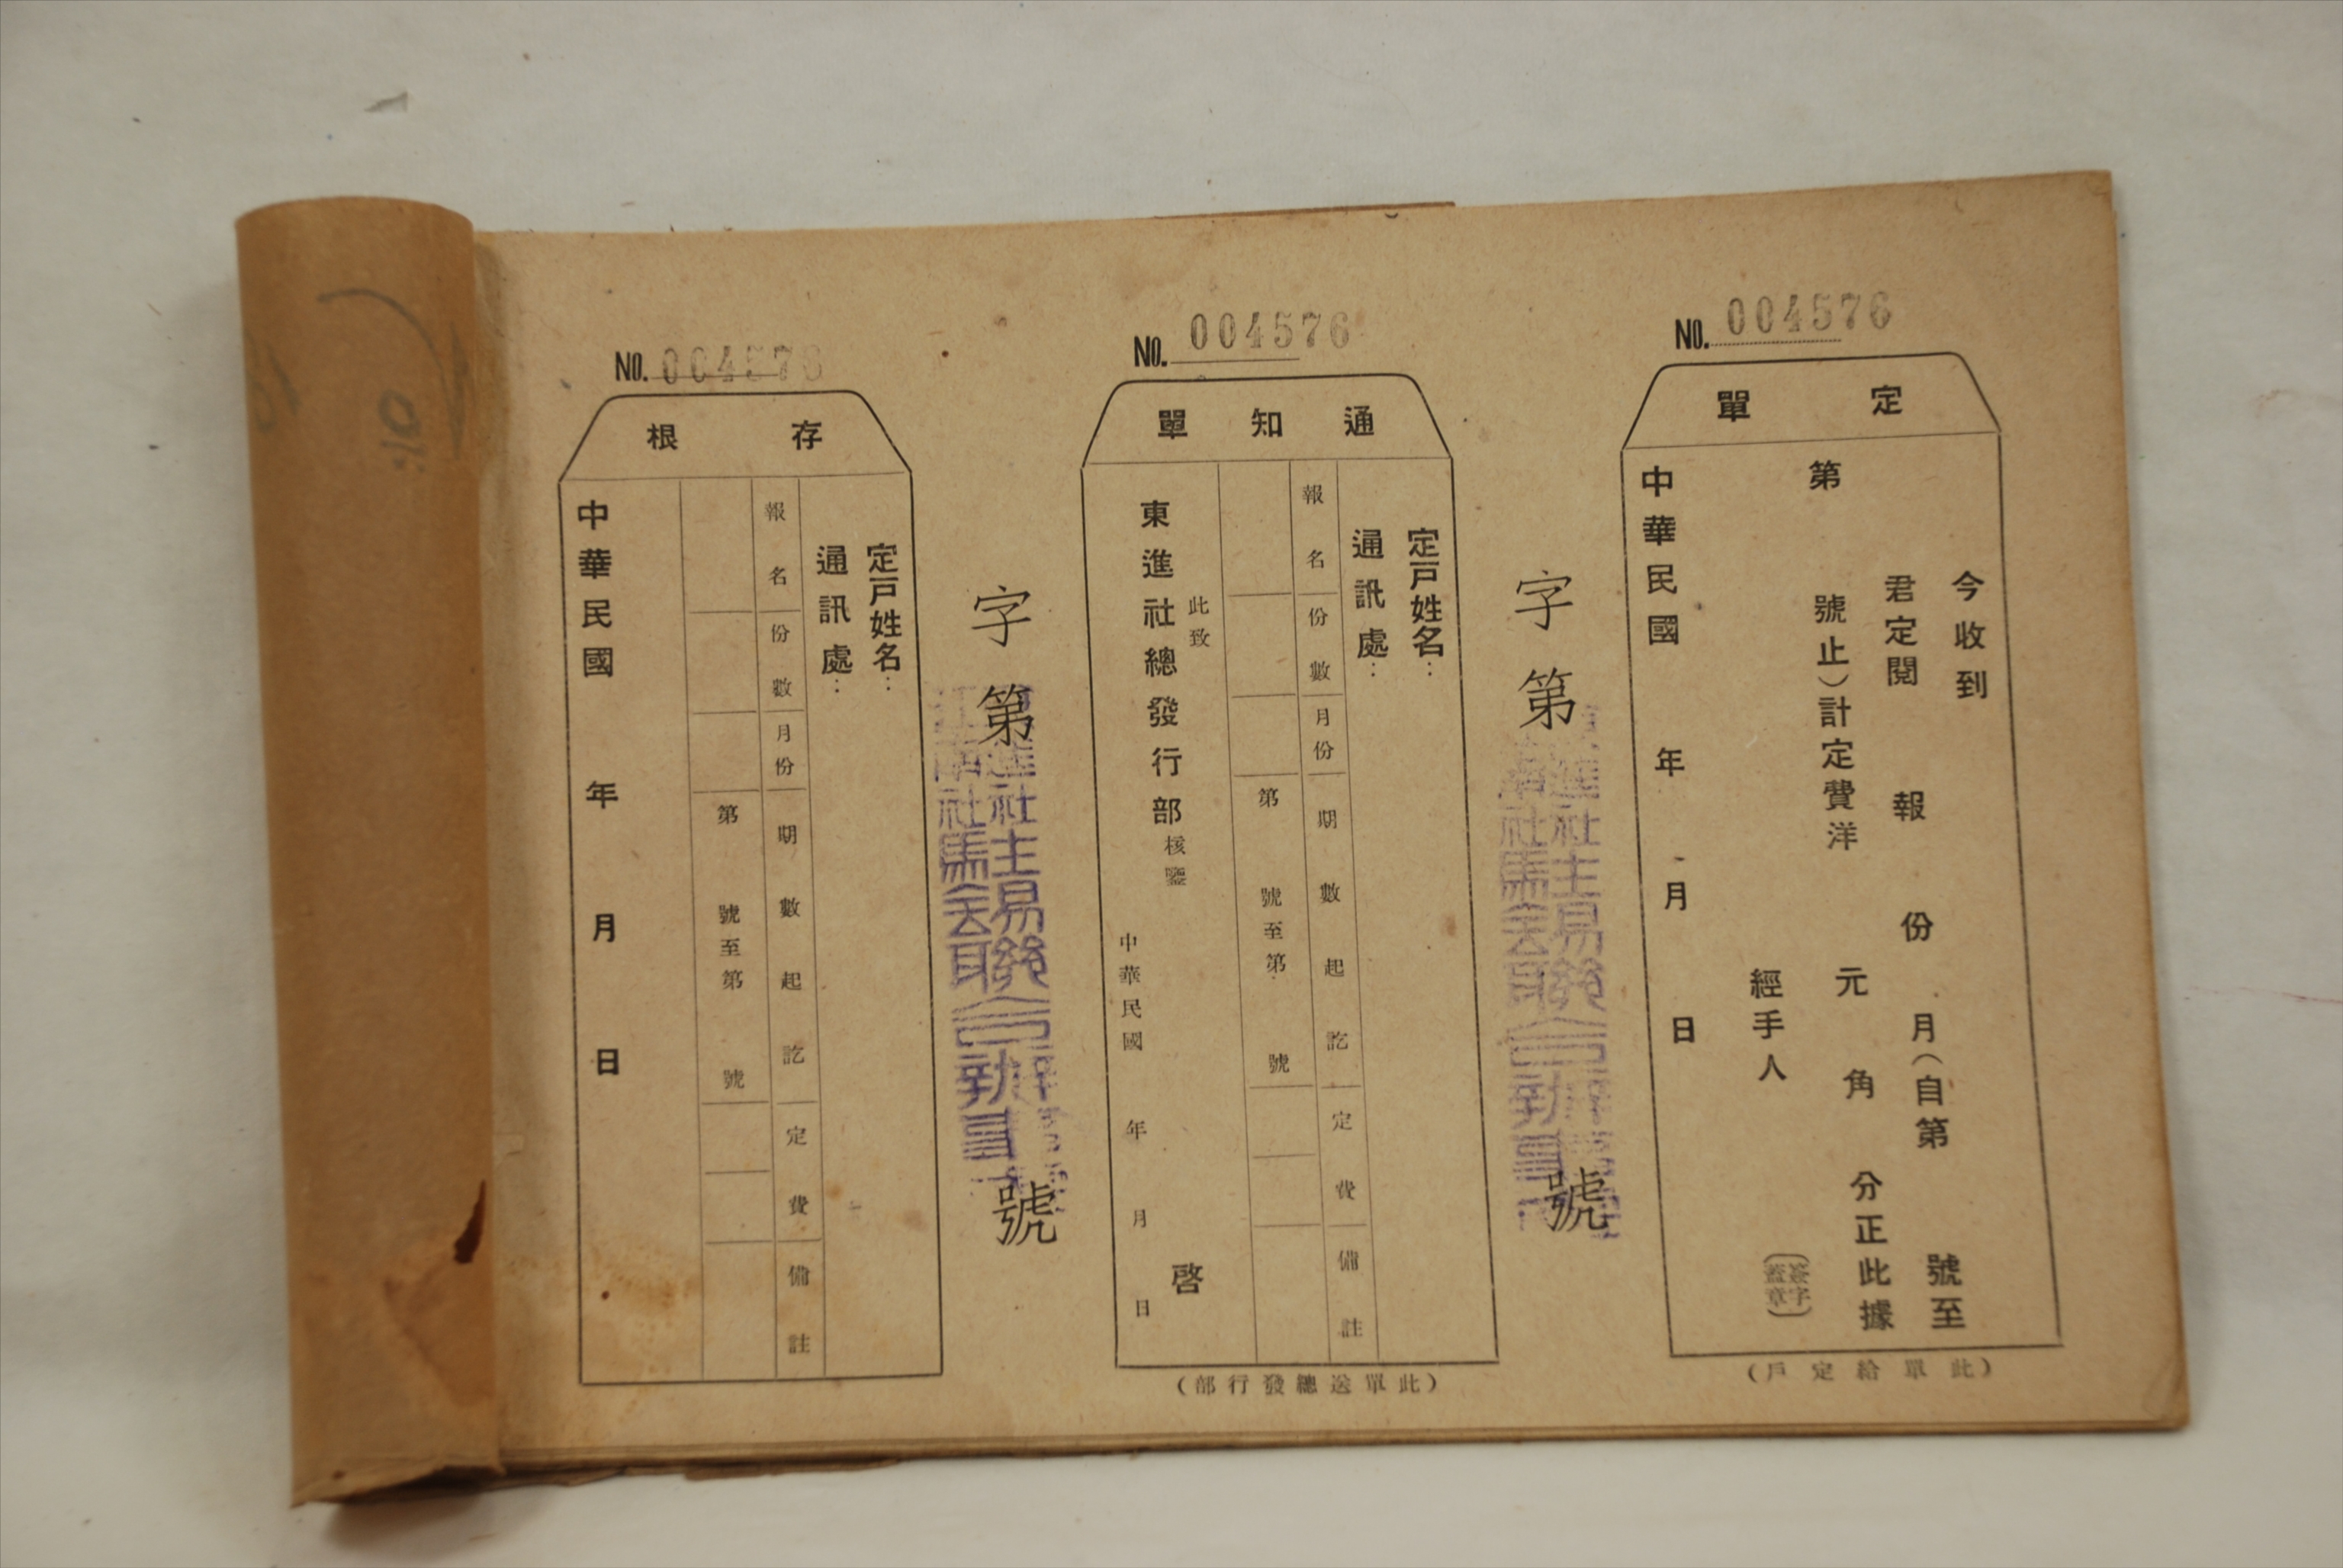 NO. 004576
定單
今收到
君定閱 報 份 月(自第 號至
第 號止)計定費洋 元 角 分正此據
經手人
(簽字
蓋章)
中華民國 年 月 日
(此單給定戶)
字第 號
NO. 004576
通知單
定戶姓名:
通訊處:
報名 份數 月份 期數起訖 定費 備註
第 號至第 號
此致
東進社總發行部核鑒
啓
中華民國 年 月 日
(此單送總發行部)
字第 號
NO. 004576
存根
定戶姓名:
通訊處:
報名 份數 月份 期數起訖 定費 備註
第 號至第 號
中華民國 年 月 日